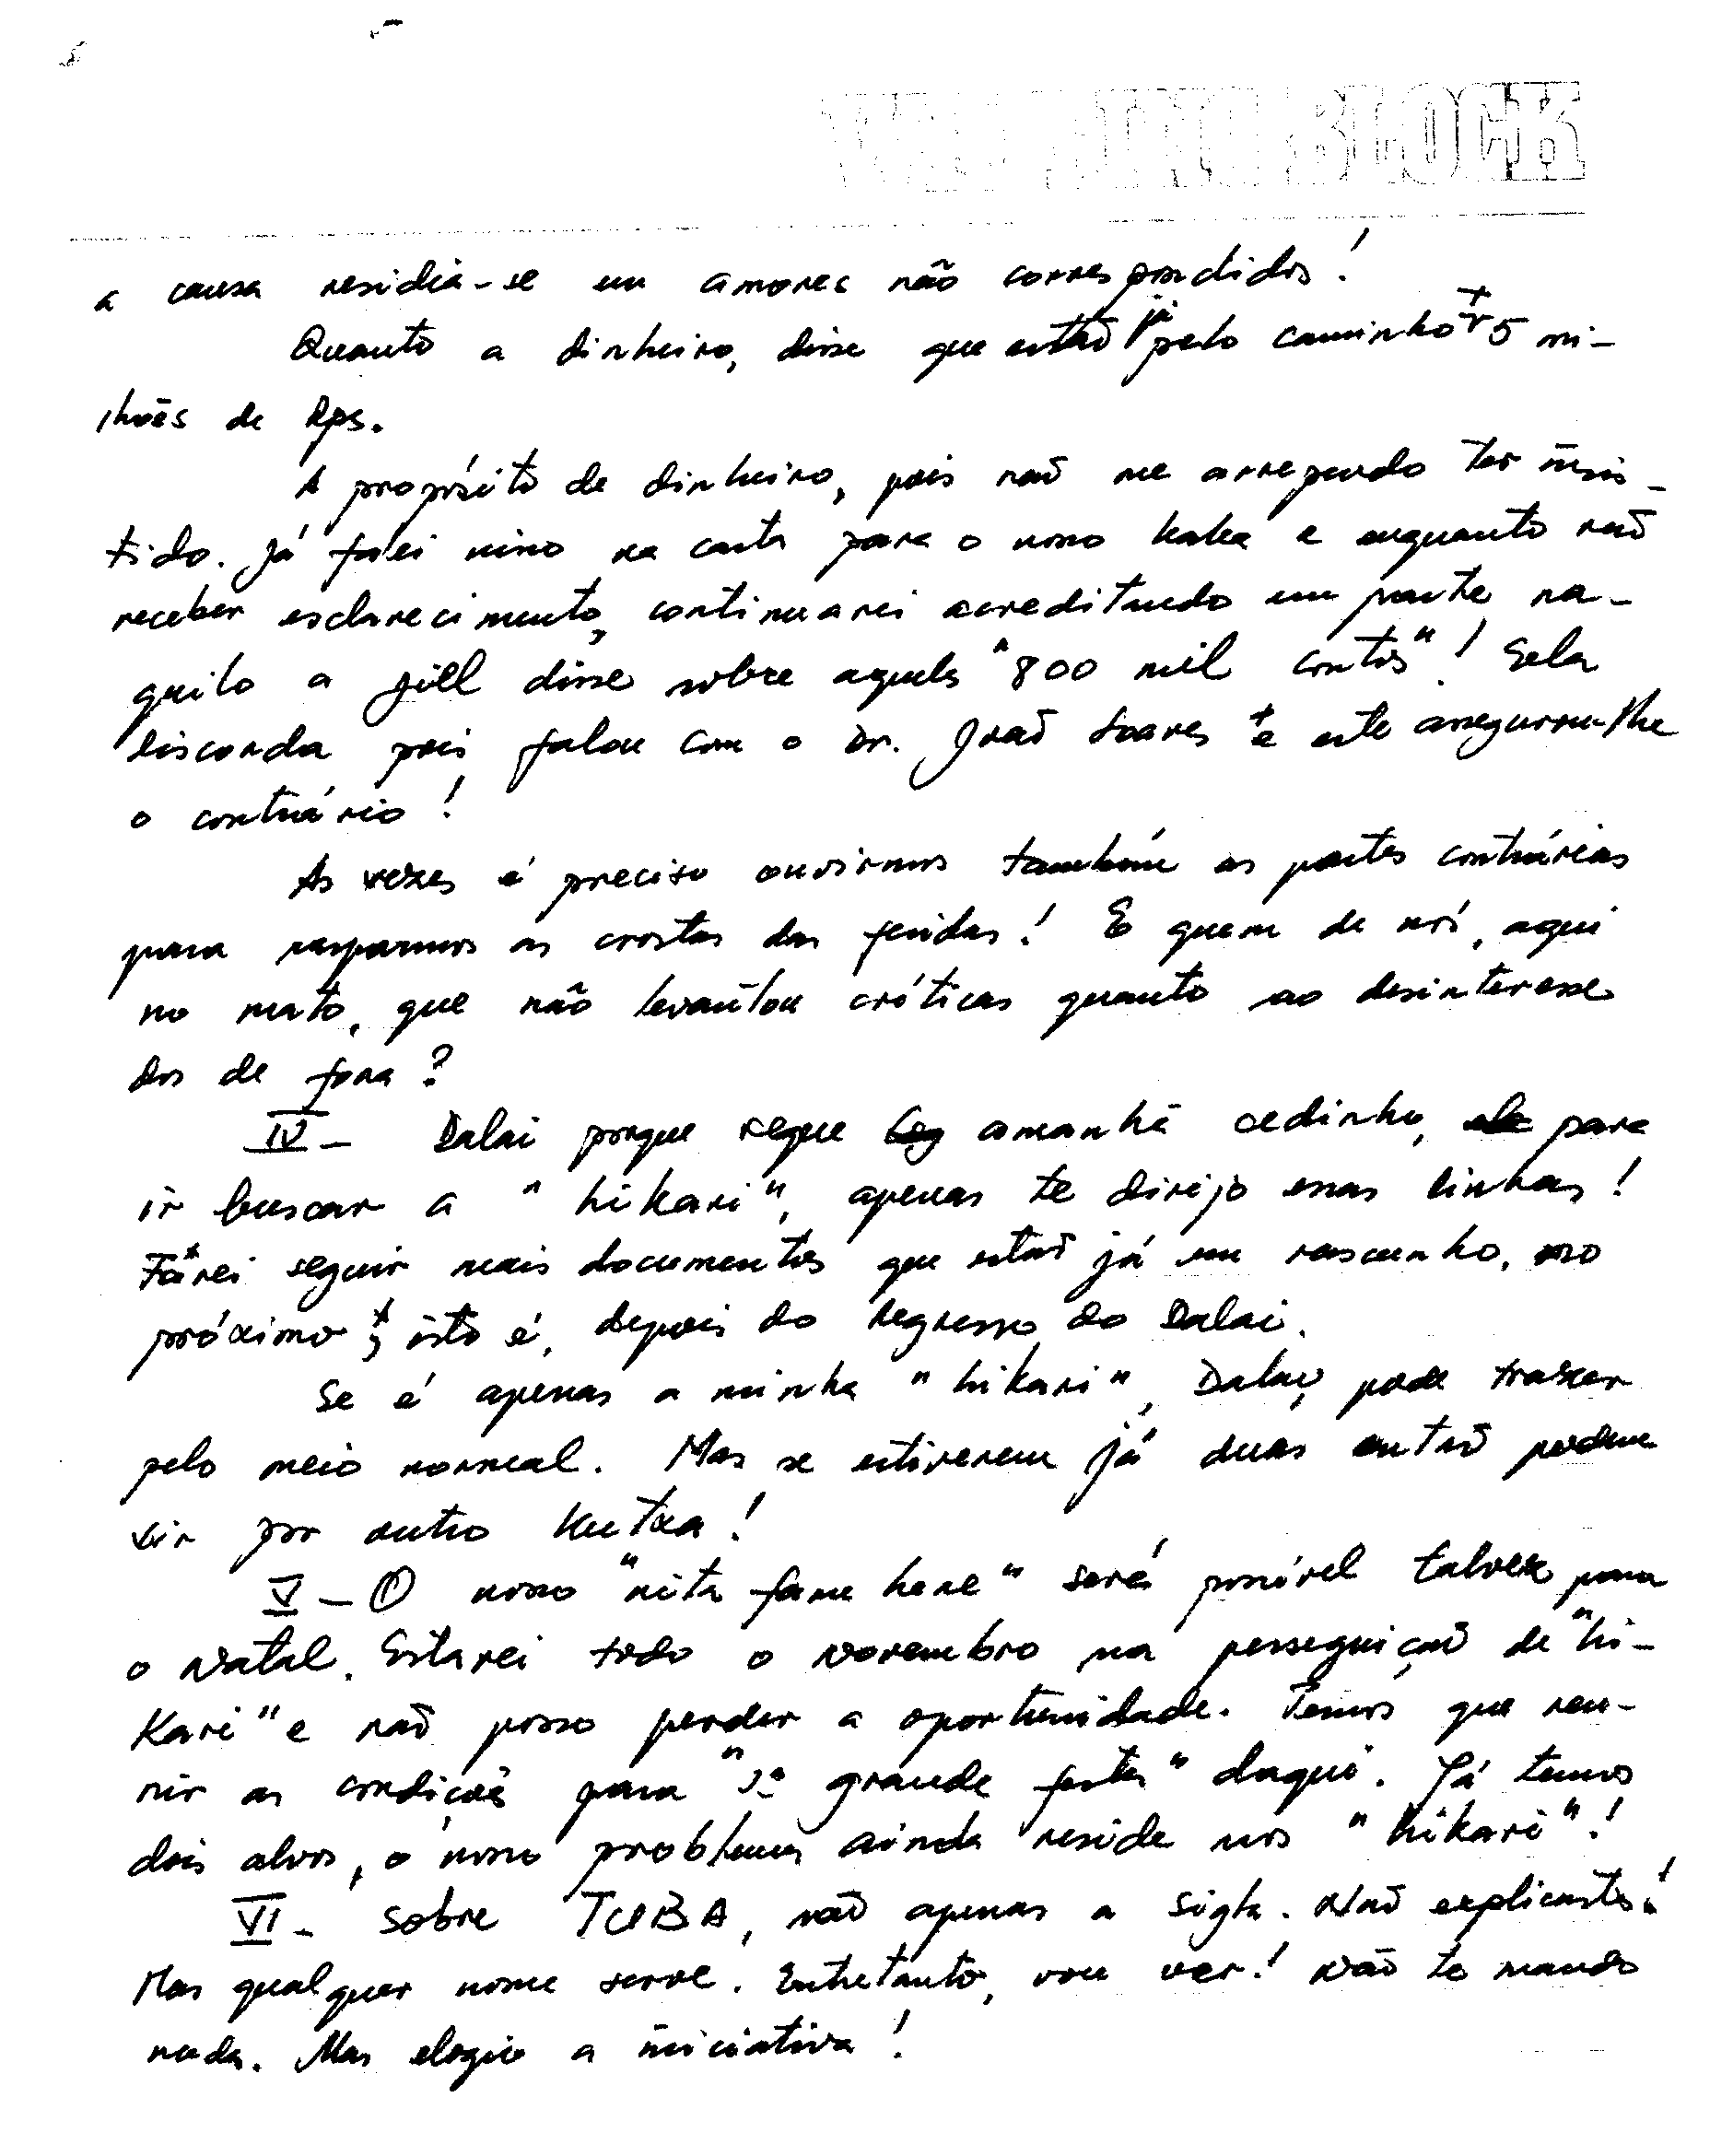 WRITING BLOCK
a causa residia-se em amores não correspondidos!
Quanto a dinheiro, disse que estão já pelo caminho 5 mi-
lhões de Rps.
A propósito de dinheiro, pois não me arrependo ter insis-
tido. Já falei nisso na carta para o nosso kaka e enquanto não
receber esclarecimento, continuarei acreditando em parte na-
quilo a Jill disse sobre aqueles "800 mil contos"! Sela
discorda pois falou com o Dr. João Soares e este assegurou-lhe
o contrário!
As vezes é preciso ouvirmos também as partes contrárias
para rasparmos as crostas das feridas! E quem de nós, aqui
no mato, que não levantou críticas quanto ao desinteresse
dos de fora?
IV - Dalai porque segue amanhã cedinho, para
ir buscar a "hikari", apenas te dirijo essas linhas!
Farei seguir mais documentos que estão já em rascunho, no
próximo, isto é, depois do regresso do Dalai.
Se é apenas a minha "hikari", Dalai, pode trazer
pelo meio normal. Mas se estiverem já duas então podem
vir por outro kutxa!
V - O nosso "rita fame hene" será possível talvez para
o Natal. Estarei todo o Novembro na perseguição de "hi-
kari" e não posso perder a oportunidade. Temos que reu-
nir as condições para "1ª grande festa" daqui. Já temos
dois alvos, o nosso problema ainda reside nos "hikari"!
VI - Sobre TUBA, não apenas a sigla. Não explicaste!
Mas qualquer nome serve. Entretanto, vou ver! Não te mando
nada. Mas elogio a iniciativa!